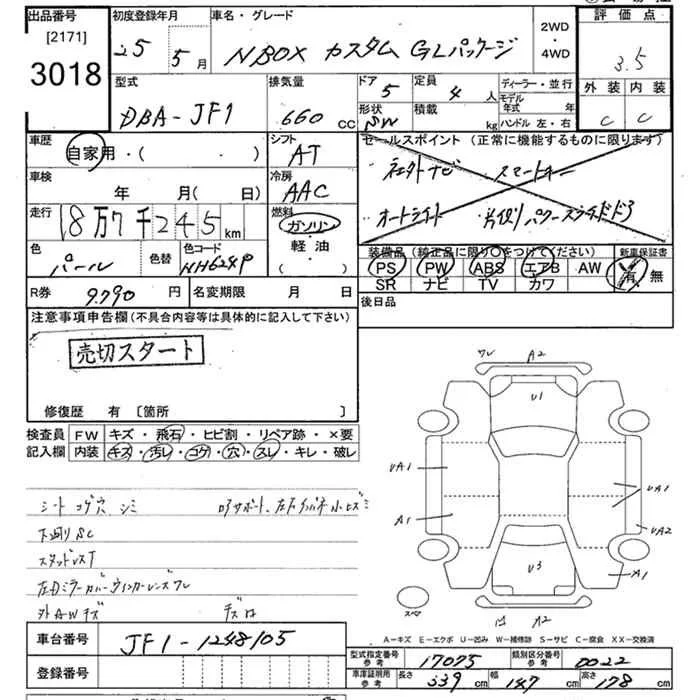 出品番号
[2171]
3018
初度登録年月
25年 5月
車名・グレード
N BOX カスタム GLパッケージ
2WD
・
4WD
評価点
3.5
外装 内装
C C
型式
DBA-JF1
排気量
660 CC
ドア 5
定員 4 人
ディーラー・並行
モデル年式 年
形状 SW
積載 kg
ハンドル 左・右
車歴
自家用・( )
シフト
AT
セールスポイント (正常に機能するものに限ります)
オートライト
車検
年 月( 日)
冷房
AAC
走行
8万7千245km
燃料
ガソリン・
軽油・
( )
色
パール
色替
色コード
NH624P
装備品 (純正品に限り○をつけてください)
PS PW ABS エアB AW
SR ナビ TV カワ
新車保証書
有・無
R券 9,790 円
名変期限 月 日
後日品
注意事項申告欄(不具合内容等は具体的に記入して下さい)
売切スタート
修復歴 有 〔箇所 〕
検査員記入欄
FW キズ・飛石・ヒビ割・リペア跡・×要
内装 キズ・汚レ・コゲ・穴・スレ・キレ・破レ
シート コゲ穴 シミ
下廻りSC
スタッドレスT
左Dミラーカバー ウインカーレンズワレ
外AWキズ
ワレ A2
U1
UA1 UA1
A1 UA2
U3 A1
スペア
A2
A-キズ E-エクボ U-凹み W-補修跡 S-サビ C-腐食 XX-交換済
車台番号 JF1-1248105
登録番号
型式指定番号 参考 17075
類別区分番号 参考 0022
車庫証明用 参考
長さ 339 cm
幅 147 cm
高さ 178 cm